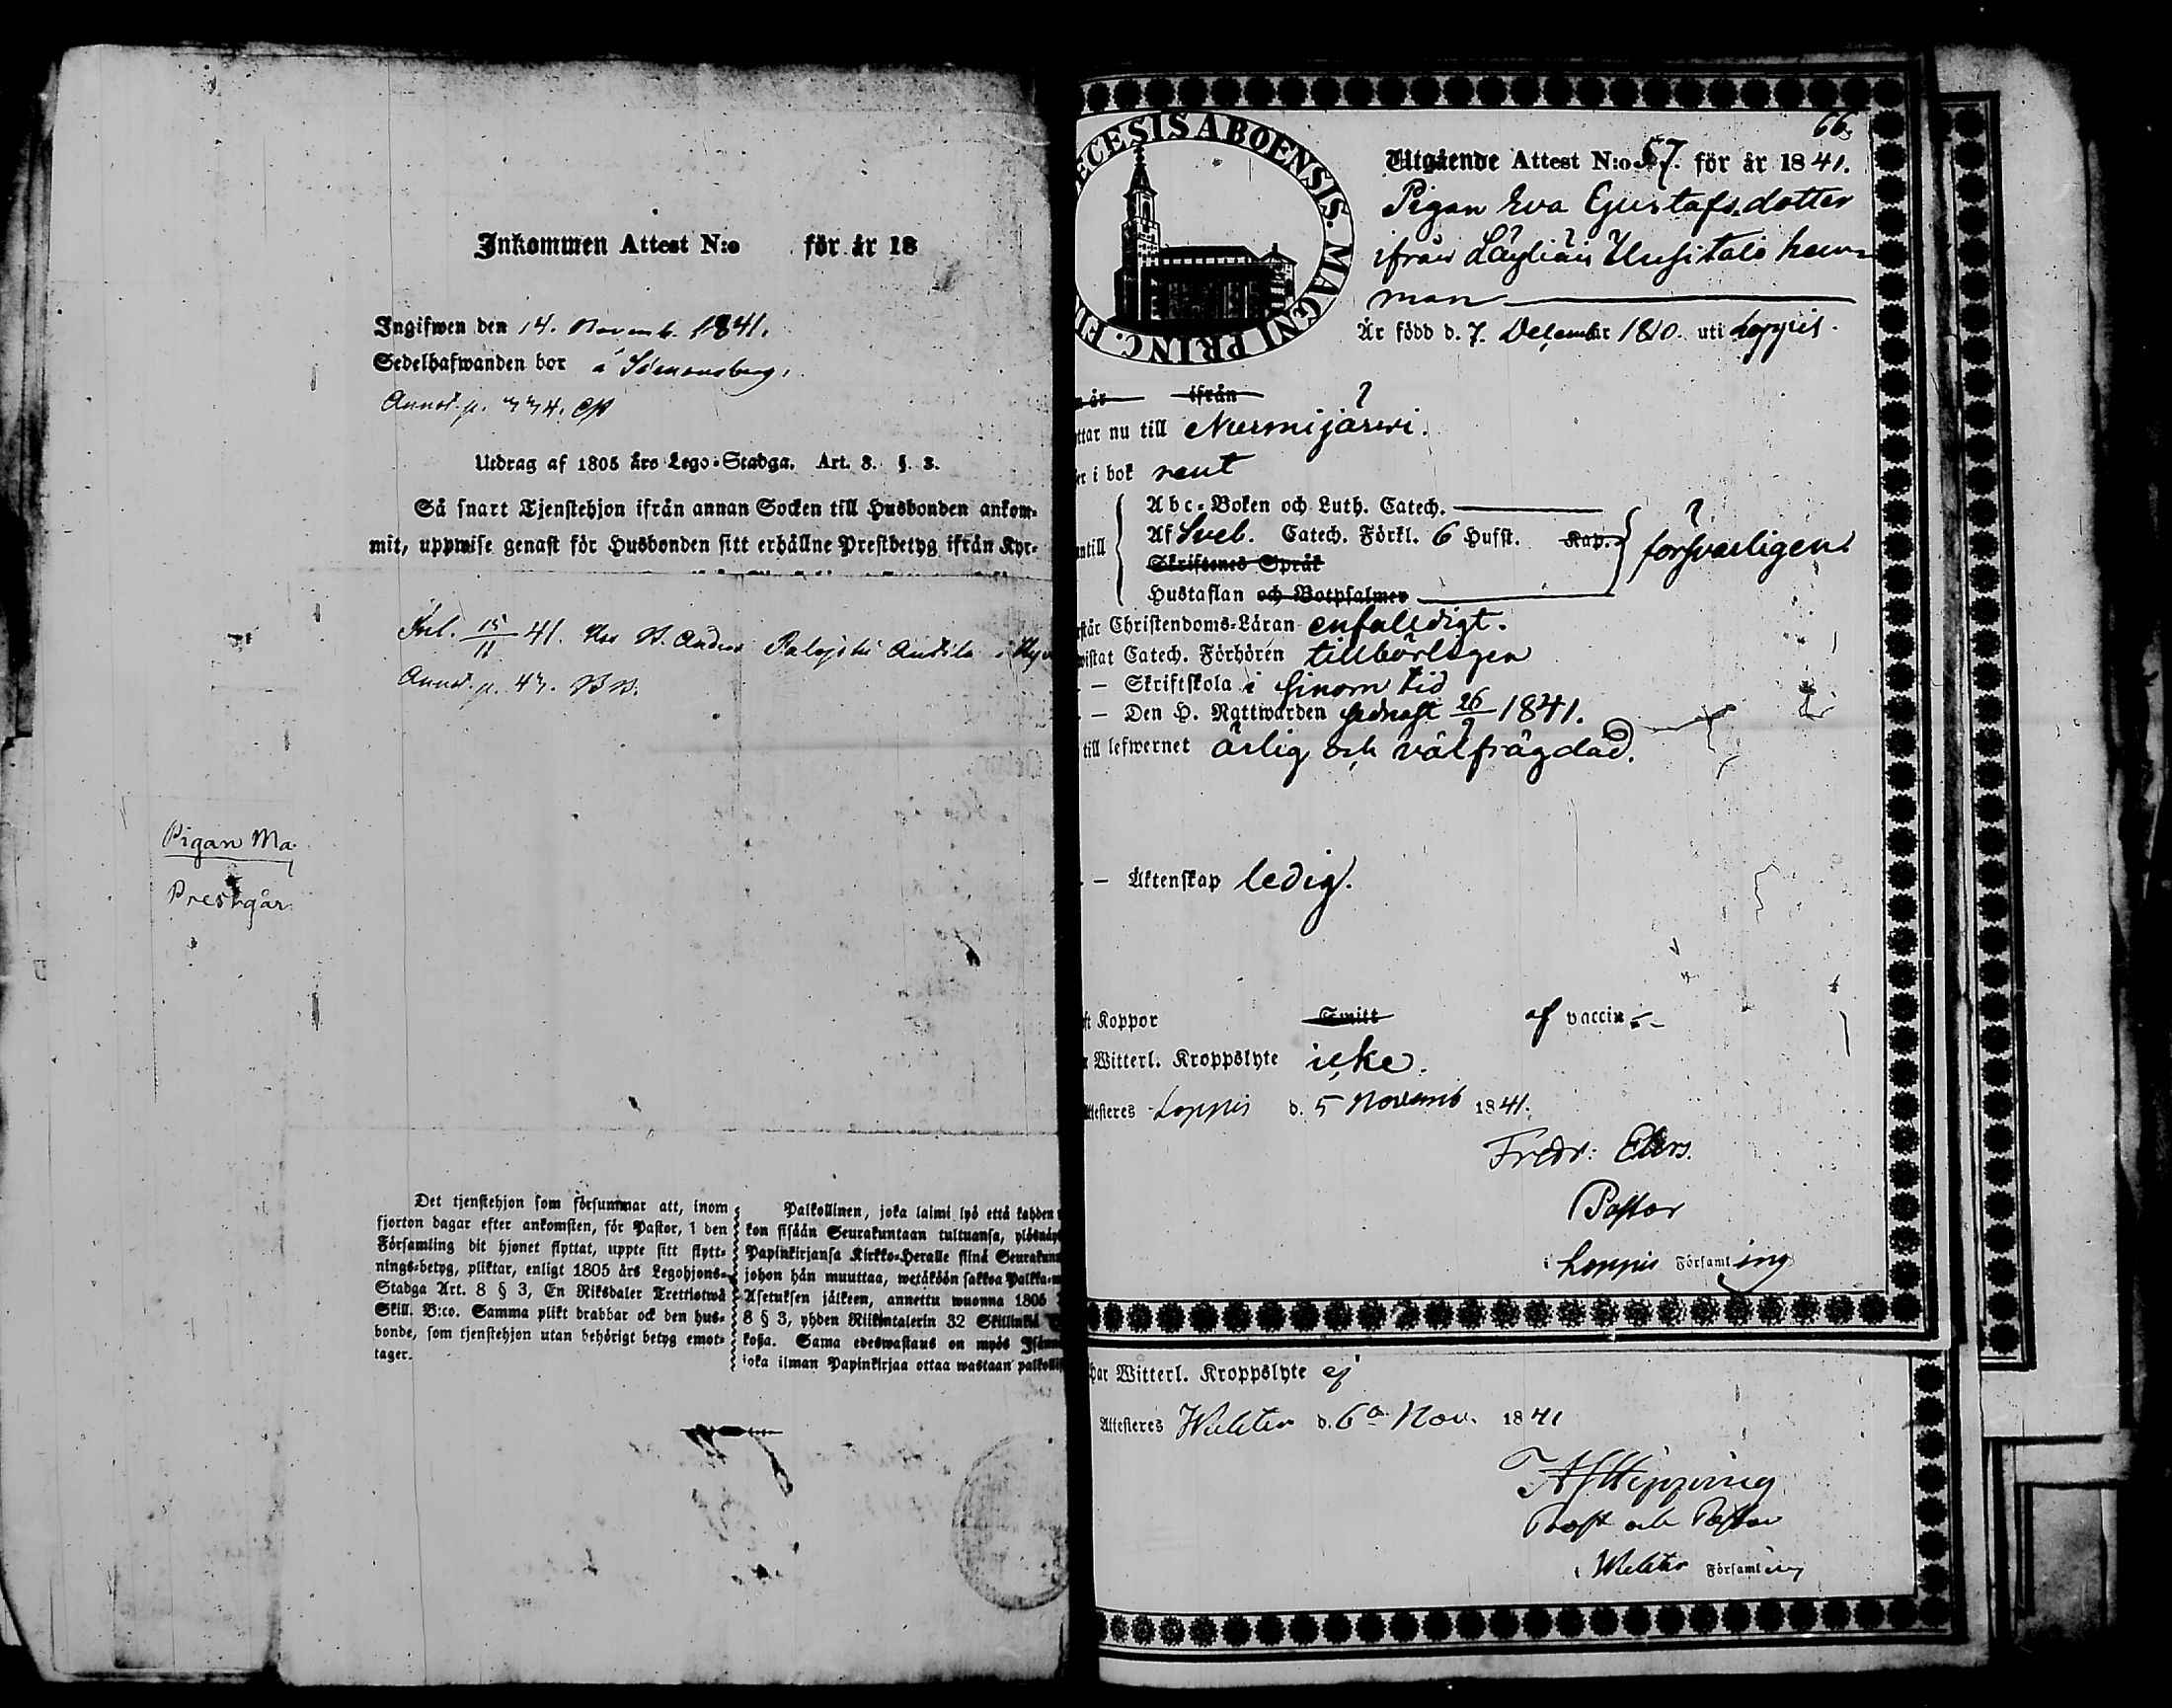 Inkommen Attest N:o för år 18
Ingifwen den 14. Novemb. 1841.
Sedelhafwanden bor å
Annot. p.
Utdrag af 1805 års Lego-Stadga. Art. 8. §. 3.
Så snart Tjenstehjon ifrån annan Socken till Husbonden ankom-
mit, uppwise genast för Husbonden sitt erhållne Prestbetyg ifrån Kyr-
Inl. 15/11 41. Hos Anders
Annot. p.
Pigan Ma
Prestgår
Det tjenstehjon som försummar att, inom
fjorton dagar efter ankomsten, för Pastor, i den
Församling dit hjonet flyttat, uppte sitt flytt-
nings-betyg, pliktar, enligt 1805 års Legohjons-
Stadga Art. 8 § 3, En Riksdaler Trettiotwå
Skill. B:co. Samma plikt drabbar ock den hus-
bonde, som tjenstehjon utan behörigt betyg emot-
tager.
Palkollinen, joka laimi lyö että kahden
kon sisään Seurakuntaan tultuansa, ylösnäyt
Papinkirjansa Kirkko-Heralle siinä Seurakunn
johon hän muuttaa, wetäköön sakkoa Palkka-
Asetuksen jälkeen, annettu wuonna 1805
8 § 3, yhden Riikintalerin 32 Skillinkiä
koßa. Sama edeswastaus on myös Isänn
joka ilman Papinkirjaa ottaa wastaan palkollis
ECESIS ABOENSIS. MAGNI PRINC. F
66
Utgående Attest N:o 57. för år 1841.
Pigan Eva Gustafsdotter
ifrån Läyliäis Uusitalo hem-
man
Är född d. 7. December 1810. uti Loppis.
år ifrån
ttar nu till Nurmijärwi.
er i bok rent
Abc-Boken och Luth. Catech.
ntill Af Sveb. Catech. Förkl. 6 Hufst. Kap. försvarligen.
Skriftenes Språk
Hustaflan och Botpsalmer
rstår Christendoms-Läran enfaldigt.
wistat Catech. Förhören tillbörligen
— Skriftskola i sinom tid
— Den H. Nattwarden sednast 26/9 1841.
till lefwernet ärlig och välfrägdad.
— Äktenskap ledig.
ft Koppor Smitt af vaccin
r Witterl. Kroppslyte icke.
Attesteres Loppis d. 5 Novemb 1841.
Fredr: Ehrs.
Pastor
i Loppis Församling
har Witterl. Kroppslyte ej
Attesteres Wichtis d. 6a Nov. 1841
Hipping
Prost och Pastor
i Wichtis Församling